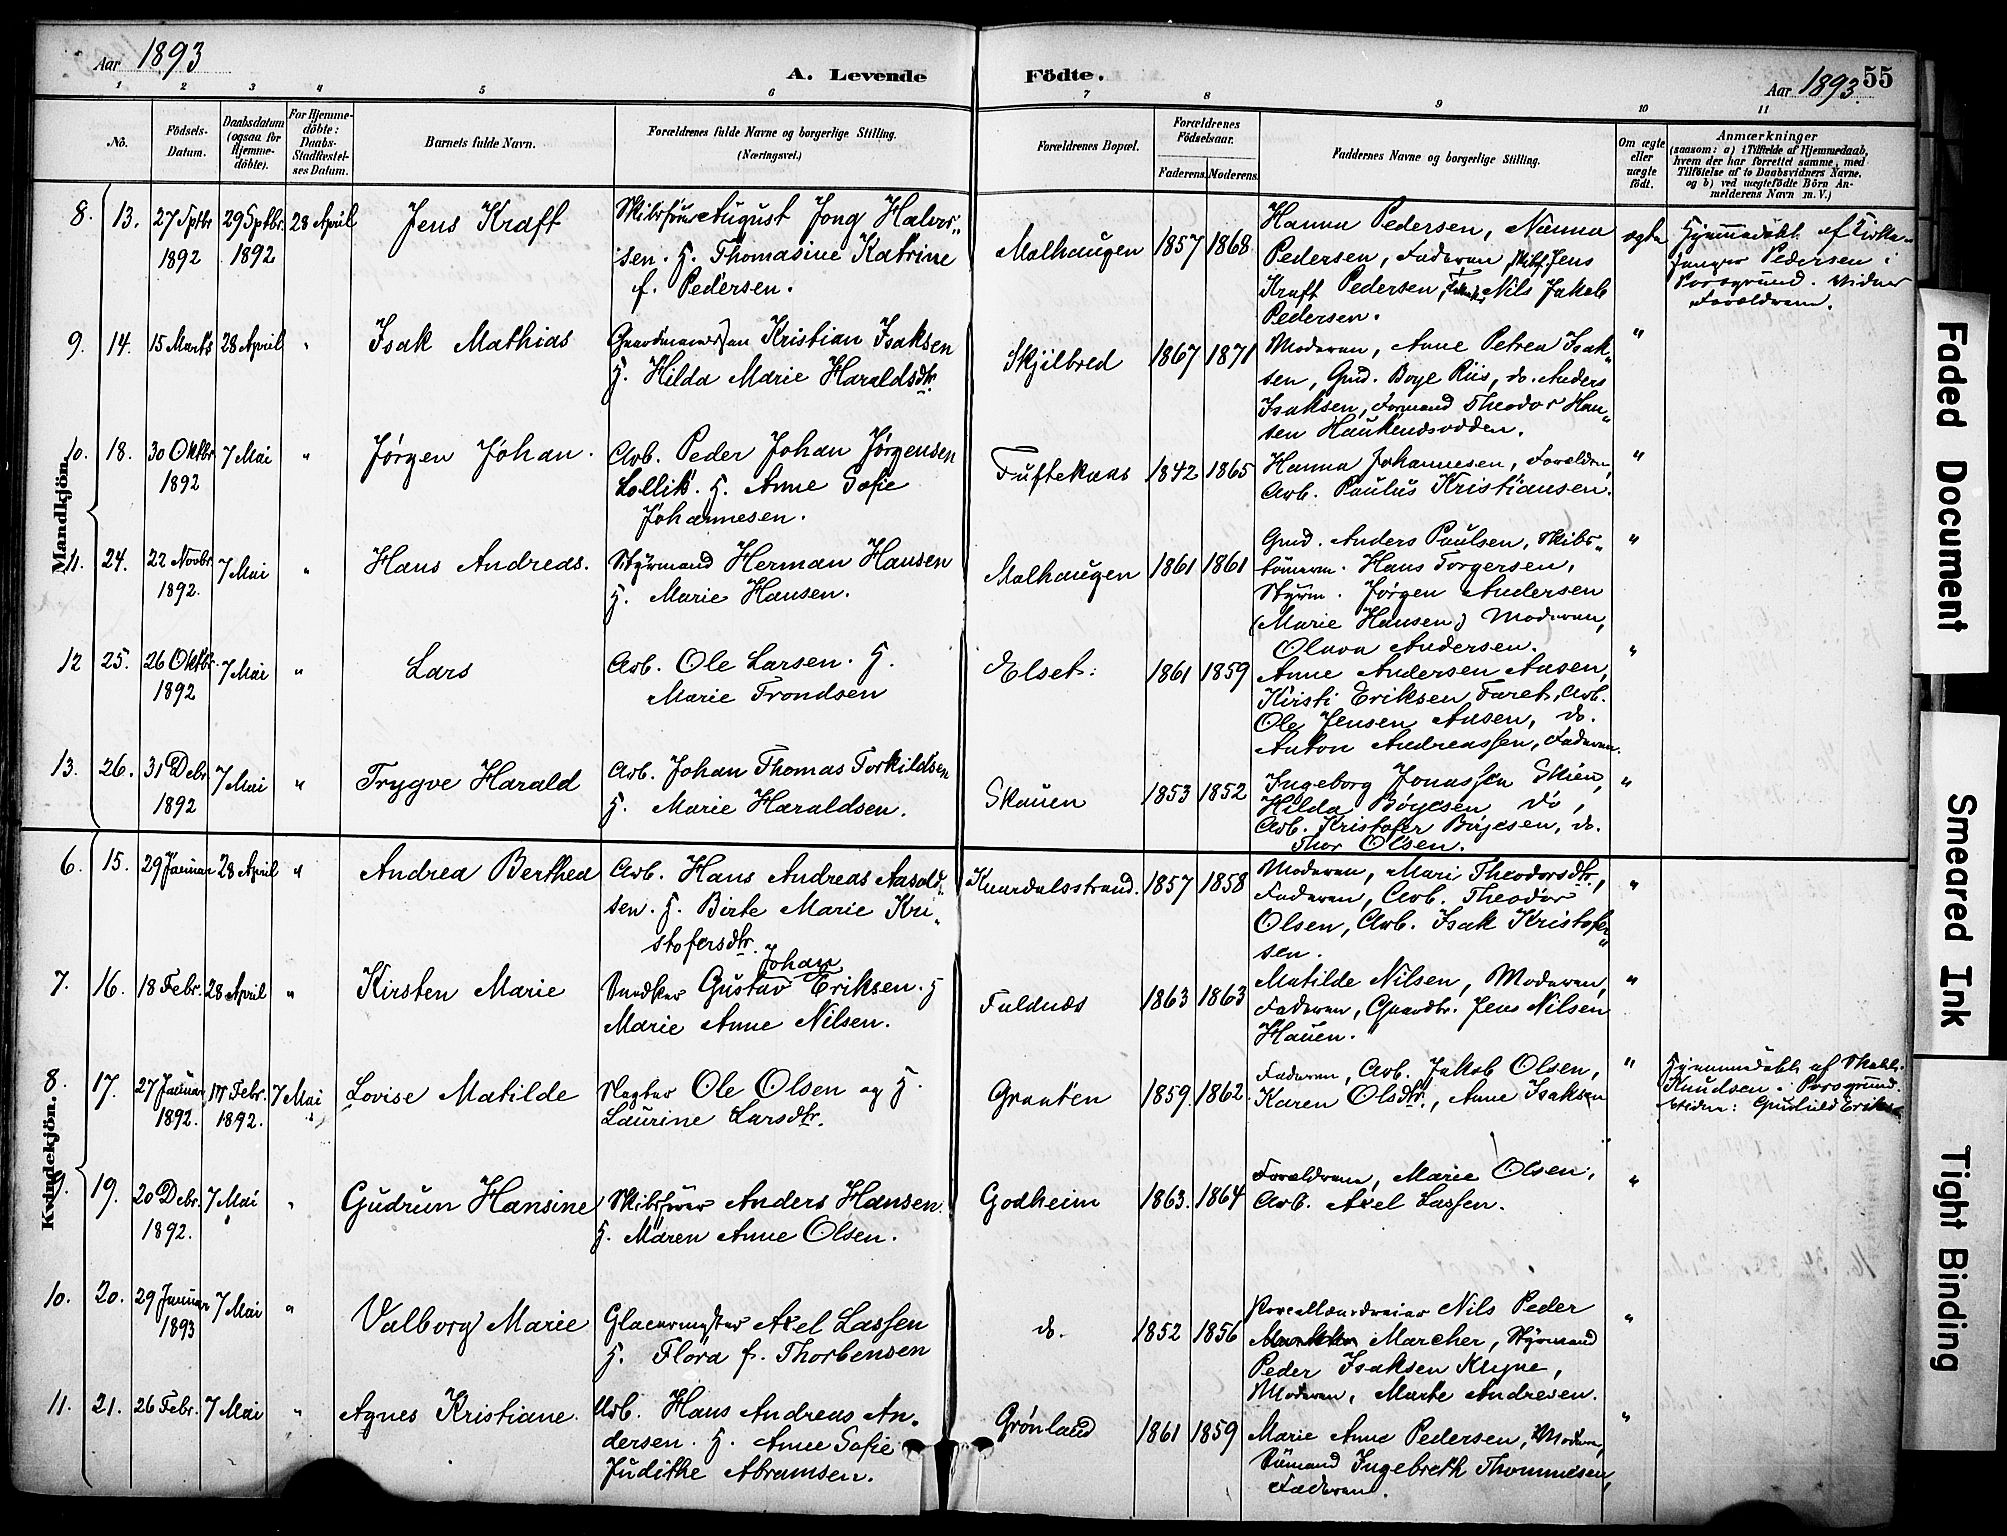 Aar 1893
A. Levende Födte.
Aar 1893. 55
1 2 3 4 5 6 7 8 9 10 11
No.
Födsels-
Datum.
Daabsdatum
(ogsaa for
Hjemme-
döbte).
For Hjemme-
döbte:
Daabs-
Stadfæstel-
ses Datum.
Barnets fulde Navn.
Forældrenes fulde Navne og borgerlige Stilling.
(Næringsvei.)
Forældrenes Bopæl.
Forældrenes
Födselsaar.
Faderens. Moderens.
Faddernes Navne og borgerlige Stilling.
Om ægte
eller
uægte
födt.
Anmærkninger
(saasom: a) i Tilfælde af Hjemmedaab,
hvem der har forrettet samme, med
Tilföielse af to Daabsvidners Navne,
og b) ved uægtefödte Börn An-
melderens Navn m. V.)
Mandkjön.
8. 13. 27 Sptbr 1892 29 Sptbr. 1892 28 April
Jens Kraft
Skibsfører August Jong Halvor-
sen. H. Thomasine Katrine
f. Pedersen.
Malhaugen 1857 1868
Hanna Pedersen, Nanna
Pedersen, Faderen, Skibsf. Jens
Kraft Pedersen, Nils Jakob
Pedersen.
ægte
Hjemmedøbt af Kirke-
sanger Pedersen i
Porsgrund. Vidner
Forældrene.
9. 14. 15 Marts 28 April "
Isak Mathias
Gaardmandssøn Kristian Isaksen
H. Hilda Marie Haraldsdtr.
Skjilbred 1867 1871
Moderen, Anne Petrea Isak-
sen, Gmd. Boye Riis, do. Anders
Isaksen, Formand Theodor Han-
sen Haukenesodden.
"
10. 18. 30 Oktbr 1892 7 Mai "
Jørgen Johan.
Arb. Peder Johan Jørgensen
Lollik. H. Anne Sofie
Johannesen.
Tuftekaas 1842 1865
Hanna Johannesen, Foreldrene,
Arb. Paulus Kristiansen.
"
11. 24. 22 Novbr. 1892. 7 Mai "
Hans Andreas.
Styrmand Herman Hansen
H. Marie Hansen.
Malhaugen 1861 1861
Gmd. Anders Paulsen, Skibs-
tømmerm. Hans Torgersen,
Styrm. Jørgen Andersen
(Marie Hansen) Moderen,
Olava Andersen.
"
12 25. 26 Oktbr. 1892 7 Mai "
Lars
Arb. Ole Larsen. H.
Marie Trondsen
Elset: 1861 1859
Anne Andersen Aasen,
Kirsti Eriksen Faret, Arb.
Ole Jensen Aasen, do.
Anton Andreassen, Faderen.
"
13. 26. 31 Debr. 1892 7 Mai "
Trygve Harald
Arb. Johan Thomas Torkildsen
H. Marie Haraldsen.
Skauen 1853 1852
Ingeborg Jonassen Skien,
Hilda Bøyesen do,
Arb. Kristofer Bøyesen, do.
Thor Olsen.
"
Kvindekjön.
6. 15. 29 Januar 28 April "
Andrea Berthea
Arb. Hans Andreas Aasold-
sen. H. Birte Marie Kri-
stofersdtr.
Knardalsstrand. 1857 1858
Moderen, Mari Theodorsdtr,
Faderen, Arb. Theodor
Olsen, Arb. Isak Kristofer-
sen.
"
7. 16. 18 Febr. 28 April "
Kirsten Marie
Johan
Snedker Gustav Eriksen. H
Marie Anne Nilsen.
Faldnes 1863 1863
Matilde Nilsen, Moderen,
Faderen, Gaardbr. Jens Nilsen
Hauen.
"
8. 17. 27 Januar 1892. 17 Febr. 1892. 7 Mai
Lovise Matilde
Slagter Ole Olsen og H.
Laurine Larsdtr.
Graaten 1859. 1862.
Faderen, Arb. Jakob Olsen,
Karen Olsdtr., Anne Isaksen
"
Hjemmedøbt af
Knudsen i Porsgrund.
Vidne: Gunhild Eriksen
9. 19. 20 Debr. 1892. 7 Mai "
Gudrun Hansine
Skibsfører Anders Hansen
H. Maren Anne Olsen.
Godheim 1863. 1864
Forældrene, Marie Olsen,
Arb. Axel Lassen.
"
10. 20. 29 Januar 1893 7 Mai "
Valborg Marie
Glasermester Axel Lassen
H. Flora f. Thorbensen
do. 1852 1856
Porcellænsdreier Nils Peder
Marcher, Styrmand
Peder Isaksen Klyve,
Moderen, Marte Andresen.
"
11. 21. 26 Febr. 7 Mai "
Agnes Kristiane.
Arb. Hans Andreas An-
dersen. H. Anne Sofie
Judithe Abramsen.
Grønland 1861 1859
Marie Anne Pedersen, Moderen,
Sømand Ingebreth Thommesen,
Faderen.
"
Faded Document
Smeared Ink
Tight Binding